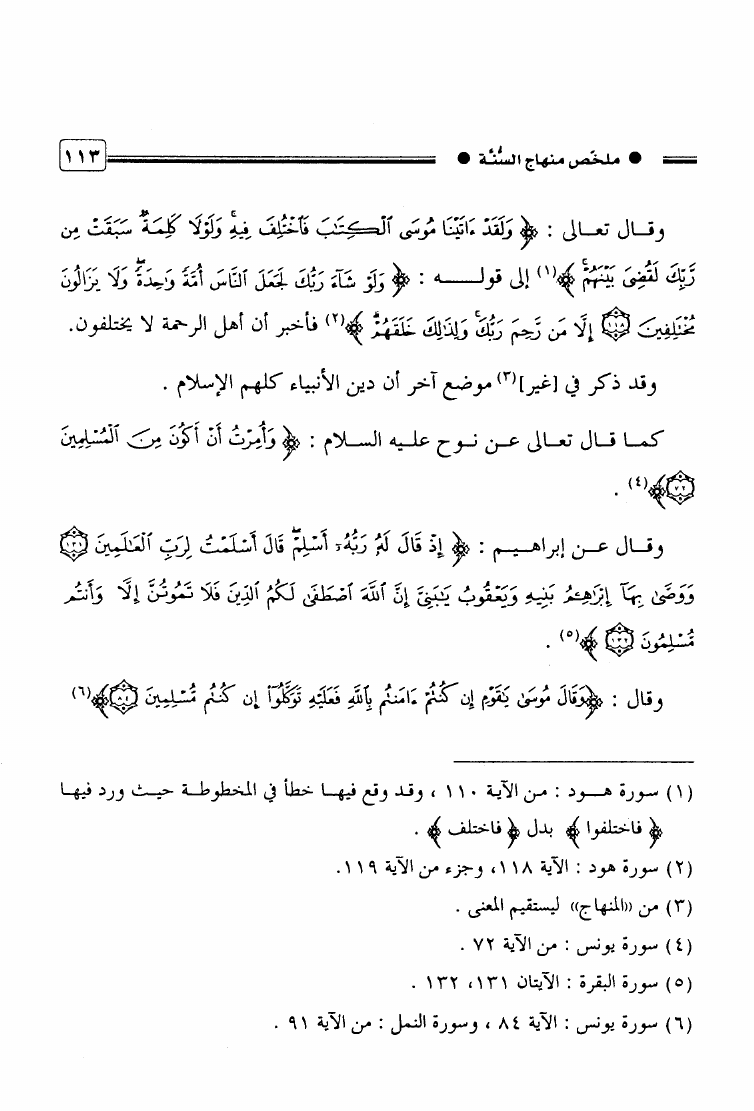 ● ملخّص منهاج السُّنَّة ● ١١٣
وقال تعالى : ﴿ وَلَقَدْ ءَاتَيْنَا مُوسَى ٱلْكِتَٰبَ فَٱخْتُلِفَ فِيهِ ۚ وَلَوْلَا كَلِمَةٌ سَبَقَتْ مِن
رَّبِّكَ لَقُضِىَ بَيْنَهُمْ ۚ ﴾(١) إلى قولــه : ﴿ وَلَوْ شَآءَ رَبُّكَ لَجَعَلَ ٱلنَّاسَ أُمَّةً وَٰحِدَةً ۖ وَلَا يَزَالُونَ
مُخْتَلِفِينَ ۝١١٨ إِلَّا مَن رَّحِمَ رَبُّكَ ۚ وَلِذَٰلِكَ خَلَقَهُمْ ۗ ﴾(٢) فأخبر أن أهل الرحمة لا يختلفون.
وقد ذكر في [غير](٣) موضع آخر أن دين الأنبياء كلهم الإسلام .
كما قال تعالى عن نوح عليه السلام : ﴿ وَأُمِرْتُ أَنْ أَكُونَ مِنَ ٱلْمُسْلِمِينَ
۝٧٢ ﴾(٤) .
وقال عن إبراهيم : ﴿ إِذْ قَالَ لَهُۥ رَبُّهُۥٓ أَسْلِمْ ۖ قَالَ أَسْلَمْتُ لِرَبِّ ٱلْعَٰلَمِينَ ۝١٣١
وَوَصَّىٰ بِهَآ إِبْرَٰهِـۧمُ بَنِيهِ وَيَعْقُوبُ يَٰبَنِىَّ إِنَّ ٱللَّهَ ٱصْطَفَىٰ لَكُمُ ٱلدِّينَ فَلَا تَمُوتُنَّ إِلَّا وَأَنتُم
مُّسْلِمُونَ ۝١٣٢ ﴾(٥) .
وقال : ﴿وَقَالَ مُوسَىٰ يَٰقَوْمِ إِن كُنتُمْ ءَامَنتُم بِٱللَّهِ فَعَلَيْهِ تَوَكَّلُوٓا۟ إِن كُنتُم مُّسْلِمِينَ ۝٨٤﴾(٦)
(١) سورة هود : من الآية ١١٠ ، وقد وقع فيها خطأ في المخطوطة حيث ورد فيها
﴿ فاختلفوا ﴾ بدل ﴿ فاختلف ﴾ .
(٢) سورة هود : الآية ١١٨، وجزء من الآية ١١٩.
(٣) من «المنهاج» ليستقيم المعنى .
(٤) سورة يونس : من الآية ٧٢ .
(٥) سورة البقرة : الآيتان ١٣١، ١٣٢ .
(٦) سورة يونس : الآية ٨٤ ، وسورة النمل : من الآية ٩١ .